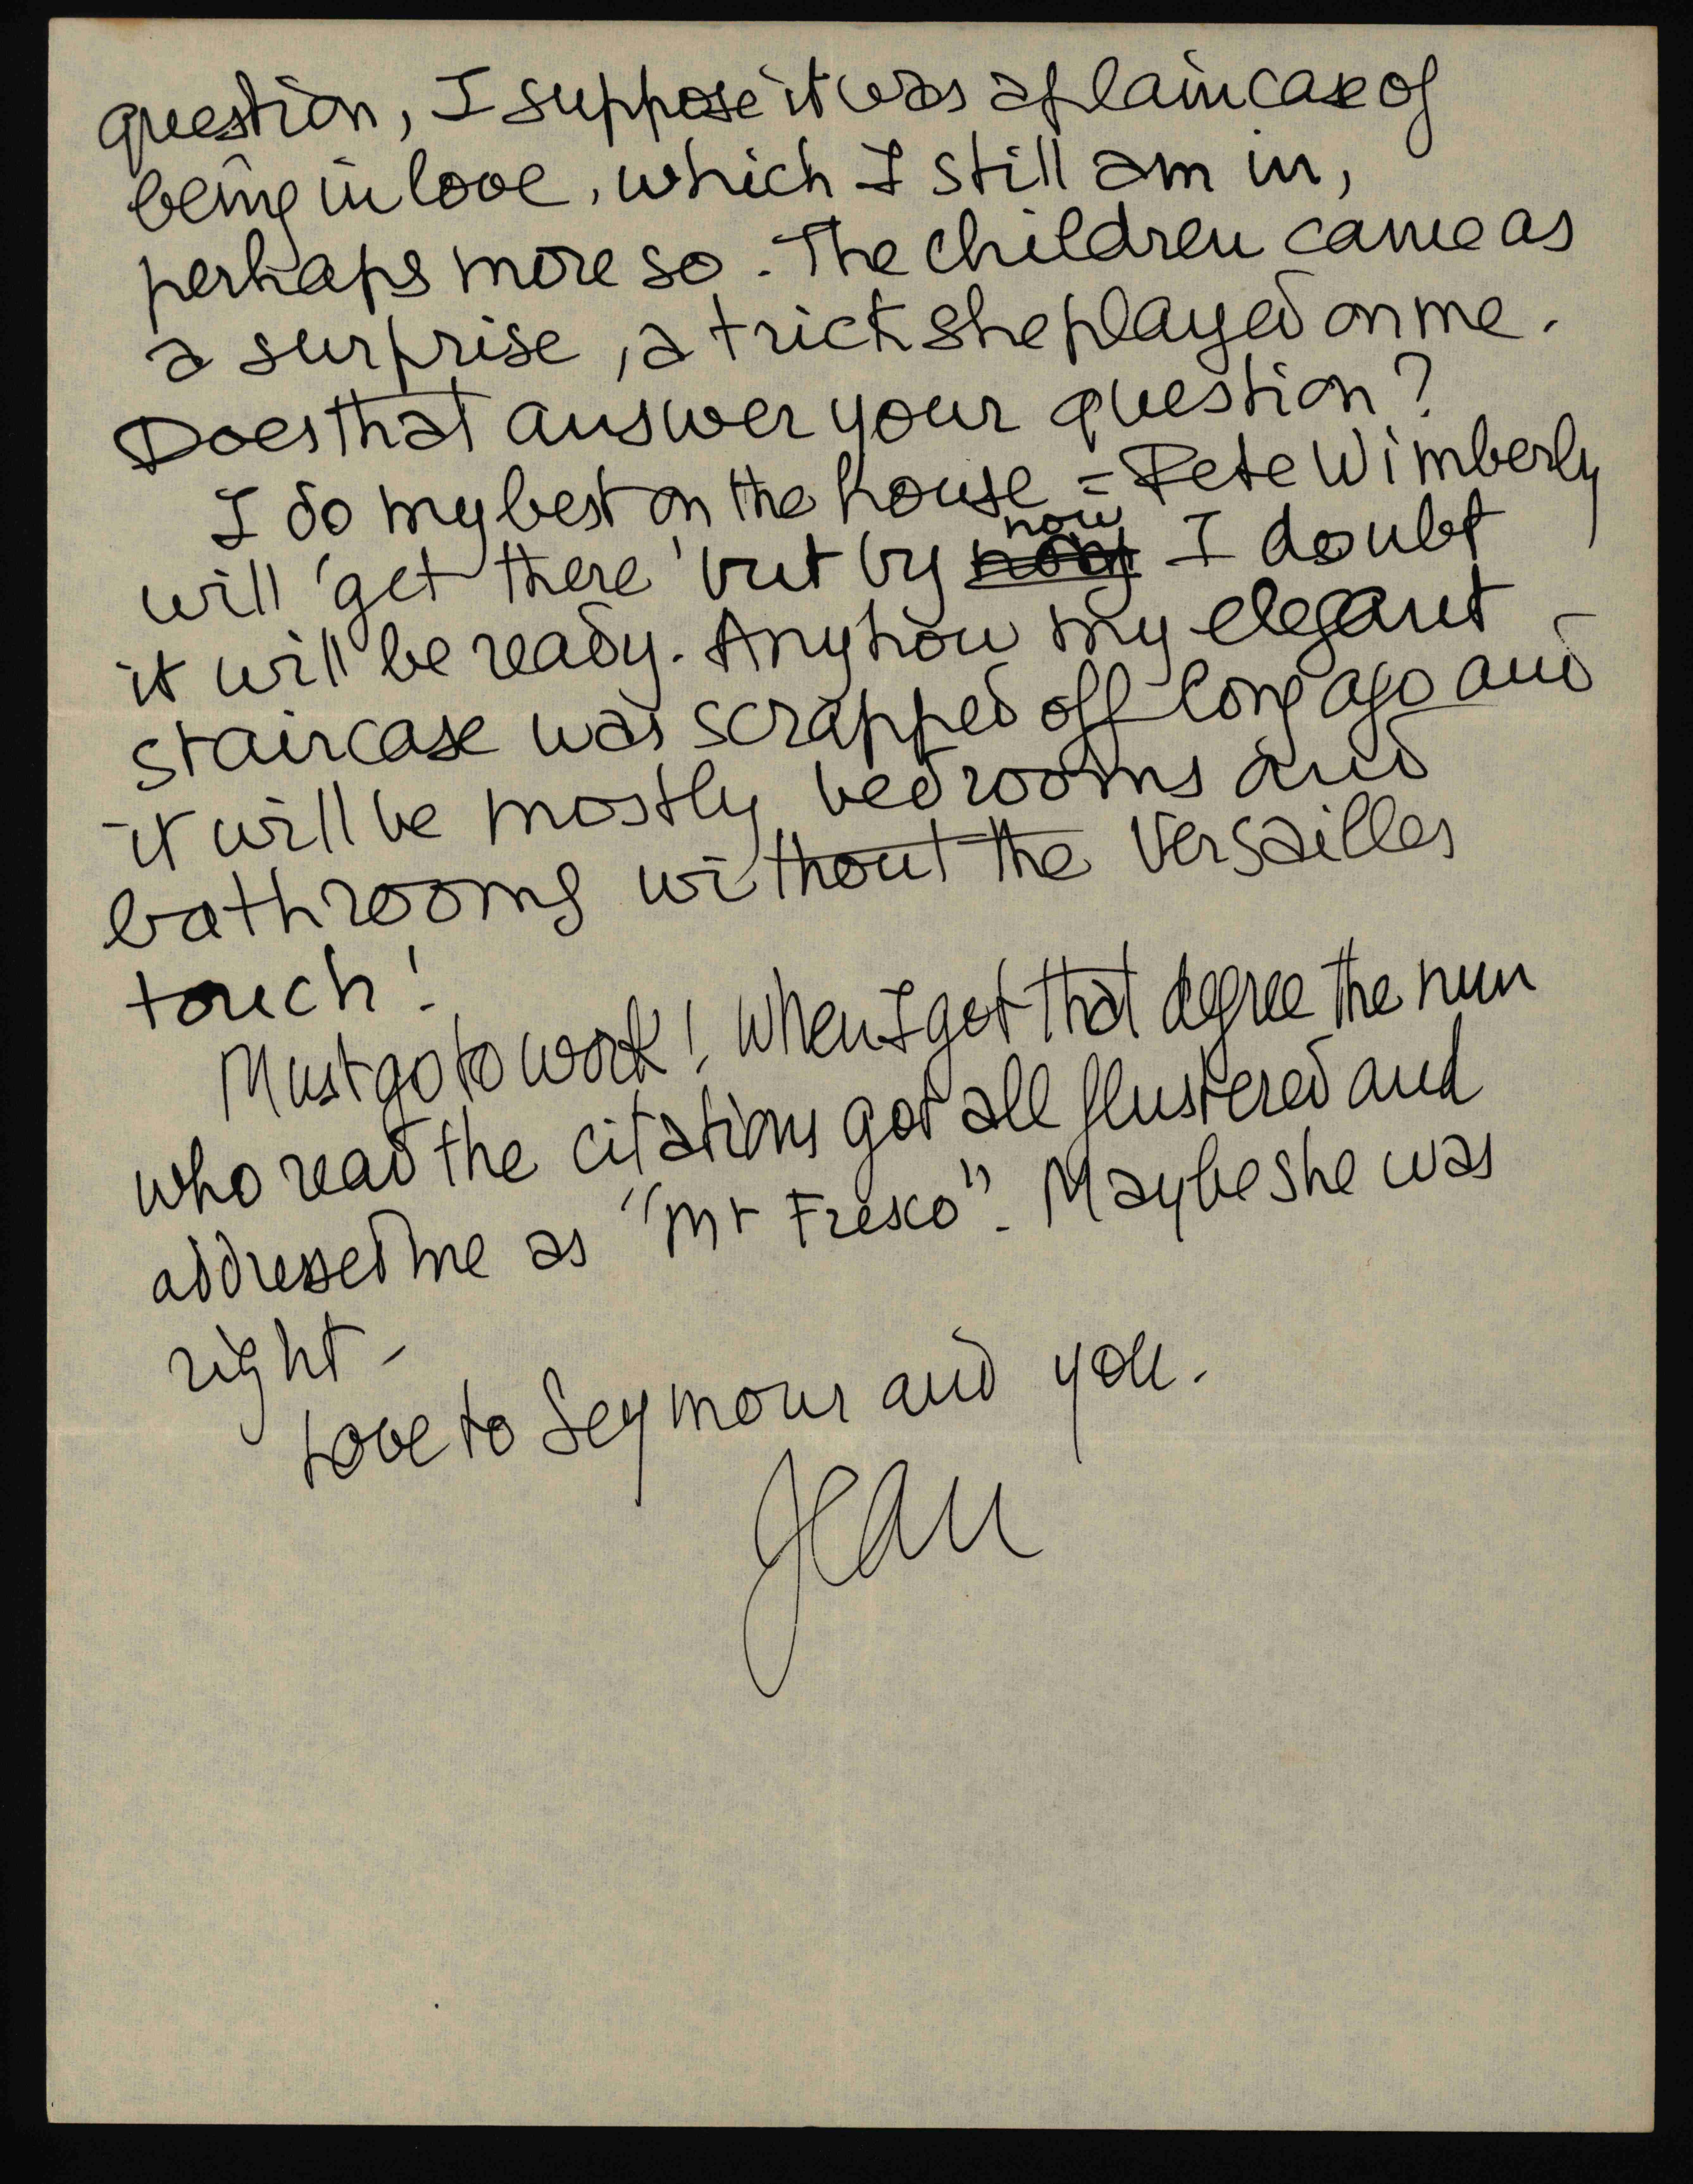 question, I suppose it was a plain case of
being in love, which I still am in,
perhaps more so. The children came as
a surprise, a trick she played on me.
Does that answer your question?
I do my best on the house = Pete Wimberly
will 'get there' but by now I doubt
it will be ready. Anyhow my elegant
staircase was scrapped off long ago and
it will be mostly bedrooms and
bathrooms without the Versailles
touch!
Must go to work! When I got that degree the nun
who read the citations got all flustered and
addressed me as "Mr Fresco". Maybe she was
right -
Love to Seymour and you.
Jean